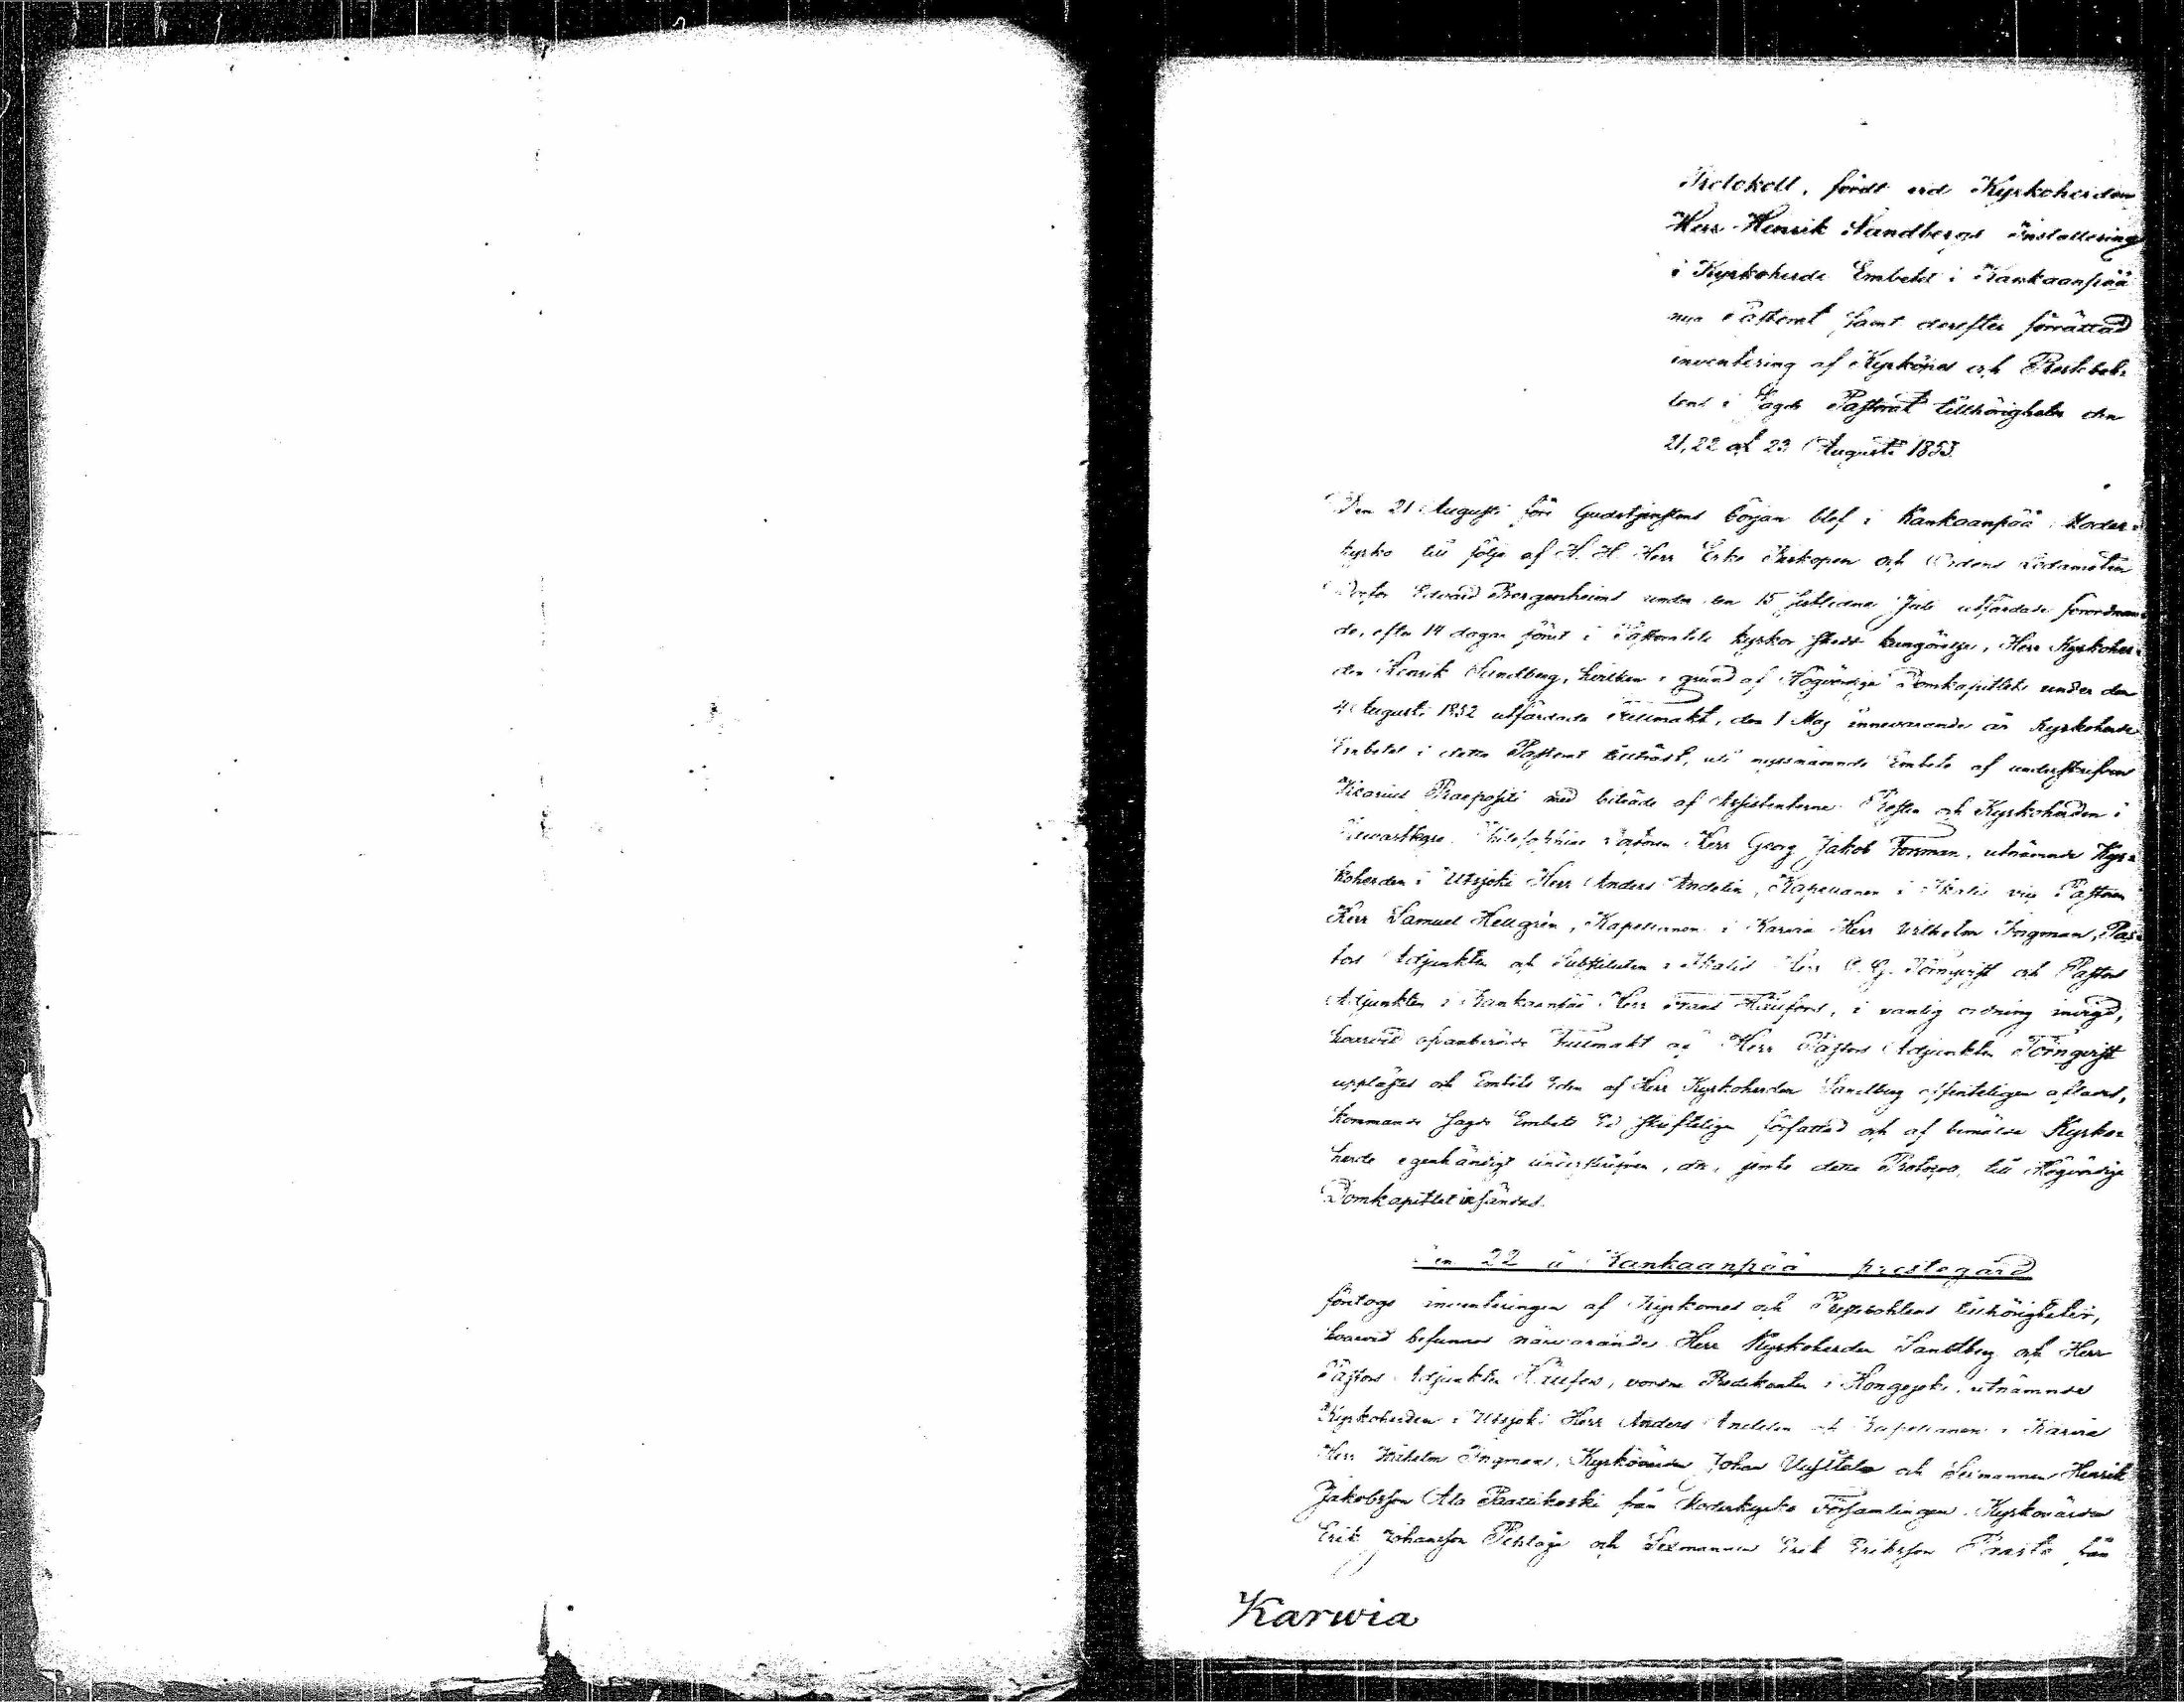 Protokoll, fördt vid Kyrkoherden
Herr Henrik Sandbergs Installering
i Kyrkoherde Embetet i Kankaanpää
nya Pastorat samt derefter förrättad
inventering af Kyrkönes och Prestebol-
tens i sagde Pastorat tillhörigheter den
21, 22 och 23 Augusti 1853.
Den 21 Augusti före Gudstjenstens början blef i Kankaanpää Moder-
kyrka till följe af H. H. Herr Erke Biskopen och Ordens Ledamoten
Doctor Edvard Bergenheims under den 15 sistledne Juli utfärdade förordnan-
de, efter 14 dagar förut i Pastoratets kyrkor skedd kungörelse, Herr Kyrkoher-
den Henrik Sandberg, hvilken i grund af Högvördige Domkapitlets under den
4 Augusti 1852 utfärdade Fullmakt, den 1 Maj innevarande år Kyrkoherde
Embetet i detta Pastorat tillträdt, uti nyssnämnde Embete af underskrifven
Vicarius Praepositi med biträde af Assistenterne Prosten och Kyrkoherden i
Philosophiae Doctoren Herr Georg Jakob Forsman, utnämnde Kyr-
koherden i Utsjoki Herr Anders Andelin, Kapellanen i Ikalis vice Pastoren
Herr Samuel Hellgrén, Kapellanen i Karvia Herr Vilhelm Ingman, Pas-
tors Adjunkten och Substituten i Ikalis Herr C. G. Törnqvist och Pastors
Adjunkten i Kankaanpää Herr Frans i vanlig ordning invigd,
hvarvid ofvanberörde Fullmakt af Herr Pastors Adjunkten Törnqvist
upplästes och Embets Eden af Herr Kyrkoherden Sandberg offenteligen aflades,
kommande sagde Embets Ed skrifteligen författad och af bemälde Kyrko-
herde egenhändigt underskrifven, att, jemte detta Protocoll, till Högvördige
Domkapitlet insändas.
Den 22 i Kankaanpää prestegård
företogs inventeringen af Kyrkornes och Prestbohlens tillhörigheter,
hvarvid befunnos närvarande Herr Kyrkoherden Sandberg och Herr
Pastors Adjunkten vordne Predikanten i Hongojoki, utnämnde
Kyrkoherden i Utsjoki Herr Anders Andelin och Kapellanen i Karvia
Herr Vilhelm Ingman, Kyrkovärden Johan och Sexmannen Henrik
Jakobsson Ala från Moderkyrko Församlingen, Kyrkovärden
Erik Johansson och Sexmannen Erik Eriksson från
Karwia